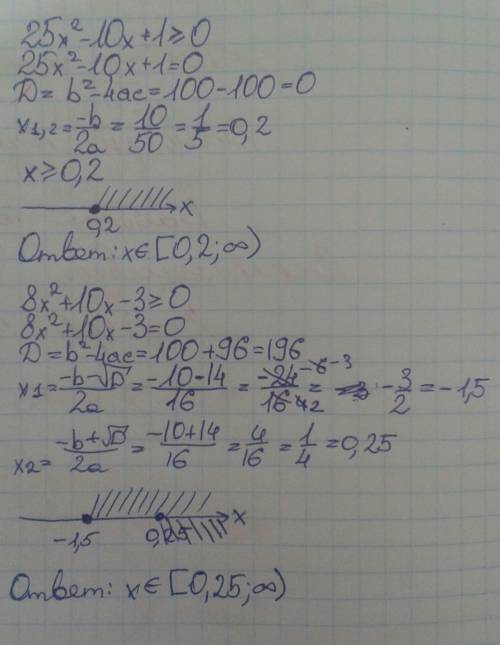 25x²-10x+1≥0
25x²-10x+1=0
D= b²-4ac=100-100=0
x1,2=-b/2a=10/50=1/5=0,2
x≥0,2
0,2 x
Ответ: x∈[0,2;∞)
8x²+10x-3≥0
8x²+10x-3=0
D=b²-4ac=100+96=196
x1=-b-√D/2a=-10-14/16=-24/16=-3/2=-1,5
x2=-b+√D/2a=-10+14/16=4/16=1/4=0,25
-1,5 0,25 x
Ответ: x∈[0,25;∞)